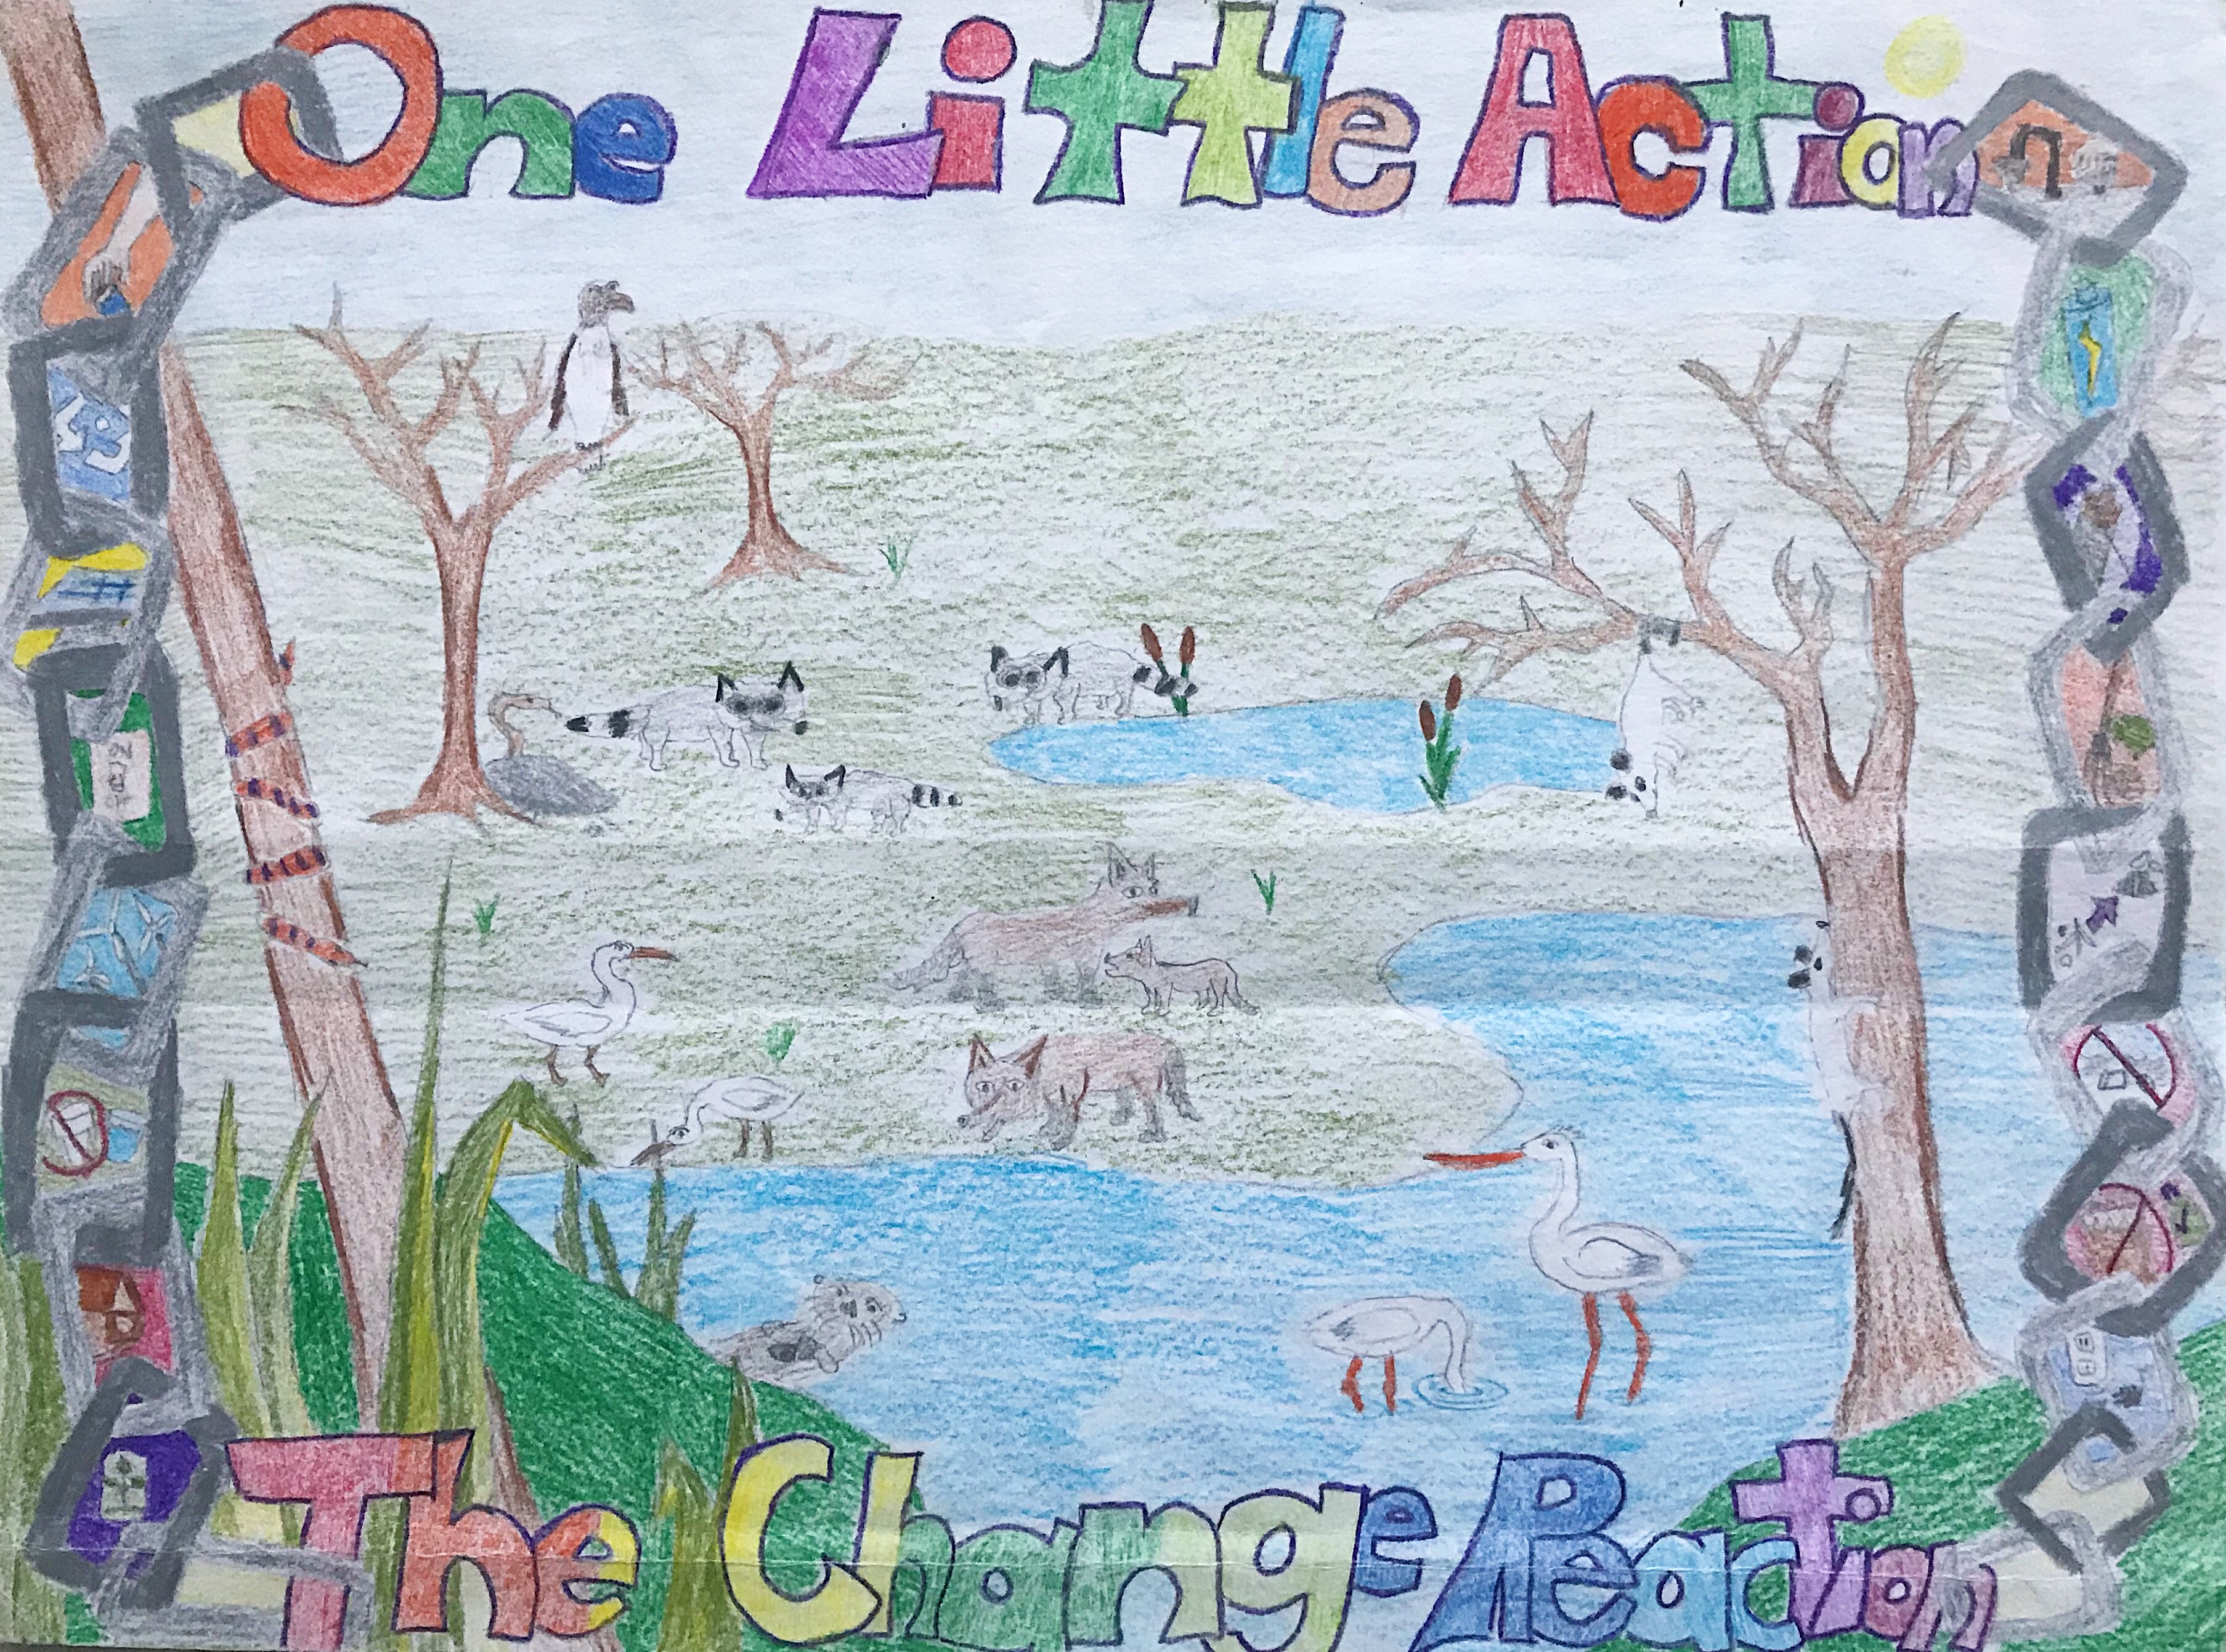 One Little Action
The Change Reaction